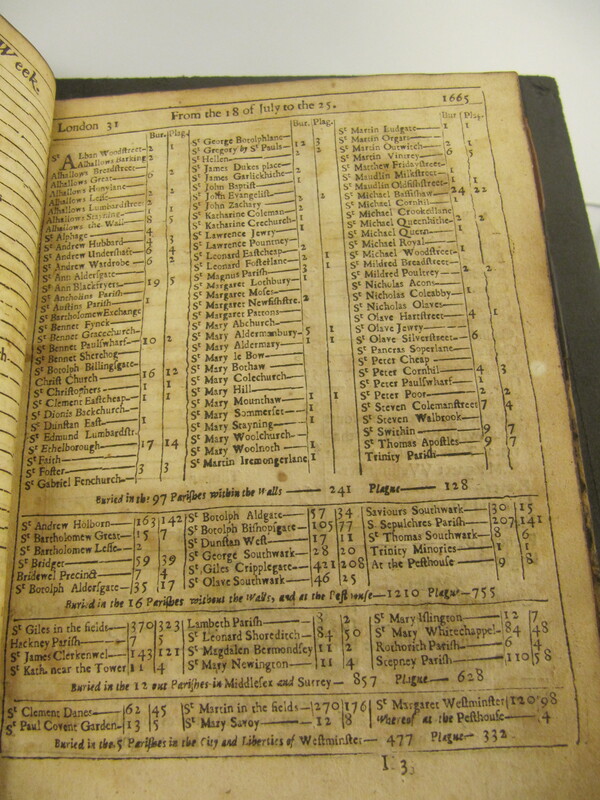 Week.
London 31 From the 18 of July to the 25. 1665
Bur. Plag.
St Alban Woodstreet 2 1
Alhallows Barking 2
Alhallows Breadstreet
Alhallows Great 6 2
Alhallows Honylane
Alhallows Lesse 2
Alhallows Lumbardstreet
Alhallows Stayning
Alhallows the Wall 8 5
St Alphage 4
St Andrew Hubbard 4 3
St Andrew Undershaft 6 4
St Andrew Wardrobe 6 2
St Ann Aldersgate
St Ann Blackfryers 19 5
St Antholins Parish
St Austins Parish
St Bartholomew Exchange
St Bennet Fynck
St Bennet Gracechurch
St Bennet Paulswharf 10 2
St Bennet Sherehog
St Botolph Billingsgate
Christ Church 16 12
St Christophers 1 1
St Clement Eastcheap 1 1
St Dionis Backchurch
St Dunstan East 1
St Edmund Lumbardstr.
St Ethelborough 17 14
St Faith
St Foster 3 3
St Gabriel Fenchurch
Bur. Plag.
St George Botolphlane
St Gregory by St Pauls 12 3
St Hellen
St James Dukes place
St James Garlickhithe
St John Baptist
St John Evangelist
St John Zachary
St Katharine Coleman
St Katharine Crechurch
St Lawrence Jewry
St Lawrence Pountney
St Leonard Eastcheap
St Leonard Fosterlane
St Magnus Parish
St Margaret Lothbury
St Margaret Moses
St Margaret Newfishstre.
St Margaret Pattons
St Mary Abchurch
St Mary Aldermanbury 5 1
St Mary Aldermary
St Mary le Bow
St Mary Bothaw
St Mary Colechurch
St Mary Hill
St Mary Mounthaw 1 1
St Mary Sommerset
St Mary Stayning
St Mary Woolchurch
St Mary Woolnoth
St Martin Iremongerlane
Bur Plag.
St Martin Ludgate
St Martin Orgars
St Martin Outwitch
St Martin Vintrey 6 5
St Matthew Fridaystreet
St Maudlin Milkstreet
St Maudlin Oldfishstreet
St Michael Bassishaw 24 22
St Michael Cornhil
St Michael Crookedlane
St Michael Queenhithe
St Michael Quern
St Michael Royal
St Michael Woodstreet
St Mildred Breadstreet
St Mildred Poultrey
St Nicholas Acons
St Nicholas Coleabby
St Nicholas Olaves
St Olave Hartstreet 4 1
St Olave Jewry
St Olave Silverstreet 6
St Pancras Soperlane
St Peter Cheap
St Peter Cornhil 4 3
St Peter Paulswharf
St Peter Poor 2 2
St Steven Colemanstreet 7 4
St Steven Walbrook
St Swithin 9 7
St Thomas Apostles 9 7
Trinity Parish
Buried in the 97 Parishes within the Walls 241 Plague 128
St Andrew Holborn 163 142
St Bartholmew Great 15 7
St Bartholmew Lesse 2
St Bridget 59 39
Bridewel Precinct 7 4
St Botolph Aldersgate 35 17
St Botolph Aldgate 57 34
St Botolph Bishopsgate 105 77
St Dunstan West 17 11
St George Southwark 28 20
St Giles Cripplegate 421 208
St Olave Southwark 46 25
Saviours Southwark 30 15
S. Sepulchres Parish 207 141
St Thomas Southwark 8 6
Trinity Minories 1 1
At the Pesthouse 9 8
Buried in the 16 Parishes without the Walls, and at the Pesthouse 1210 Plague 755
St Giles in the fields 370 323
Hackney Parish 7 5
St James Clerkenwel 143 121
St Kath. near the Tower 11 4
Lambeth Parish 3 2
St Leonard Shoreditch 84 50
St Magdalen Bermondsey 11 2
St Mary Newington 11 4
St Mary Islington 12 7
St Mary Whitechappel 84 48
Rothorith Parish 6 4
Stepney Parish 110 58
Buried in the 12 out Parishes in Middlesex and Surrey 857 Plague 628
St Clement Danes 62 45
St Paul Covent Garden 13 5
St Martin in the fields 270 176
St Mary Savoy 12 8
St Margaret Westminster 120 98
Whereof at the Pesthouse 4
Buried in the 5 Parishes in the City and Liberties of Westminster 477 Plague 332
I 3